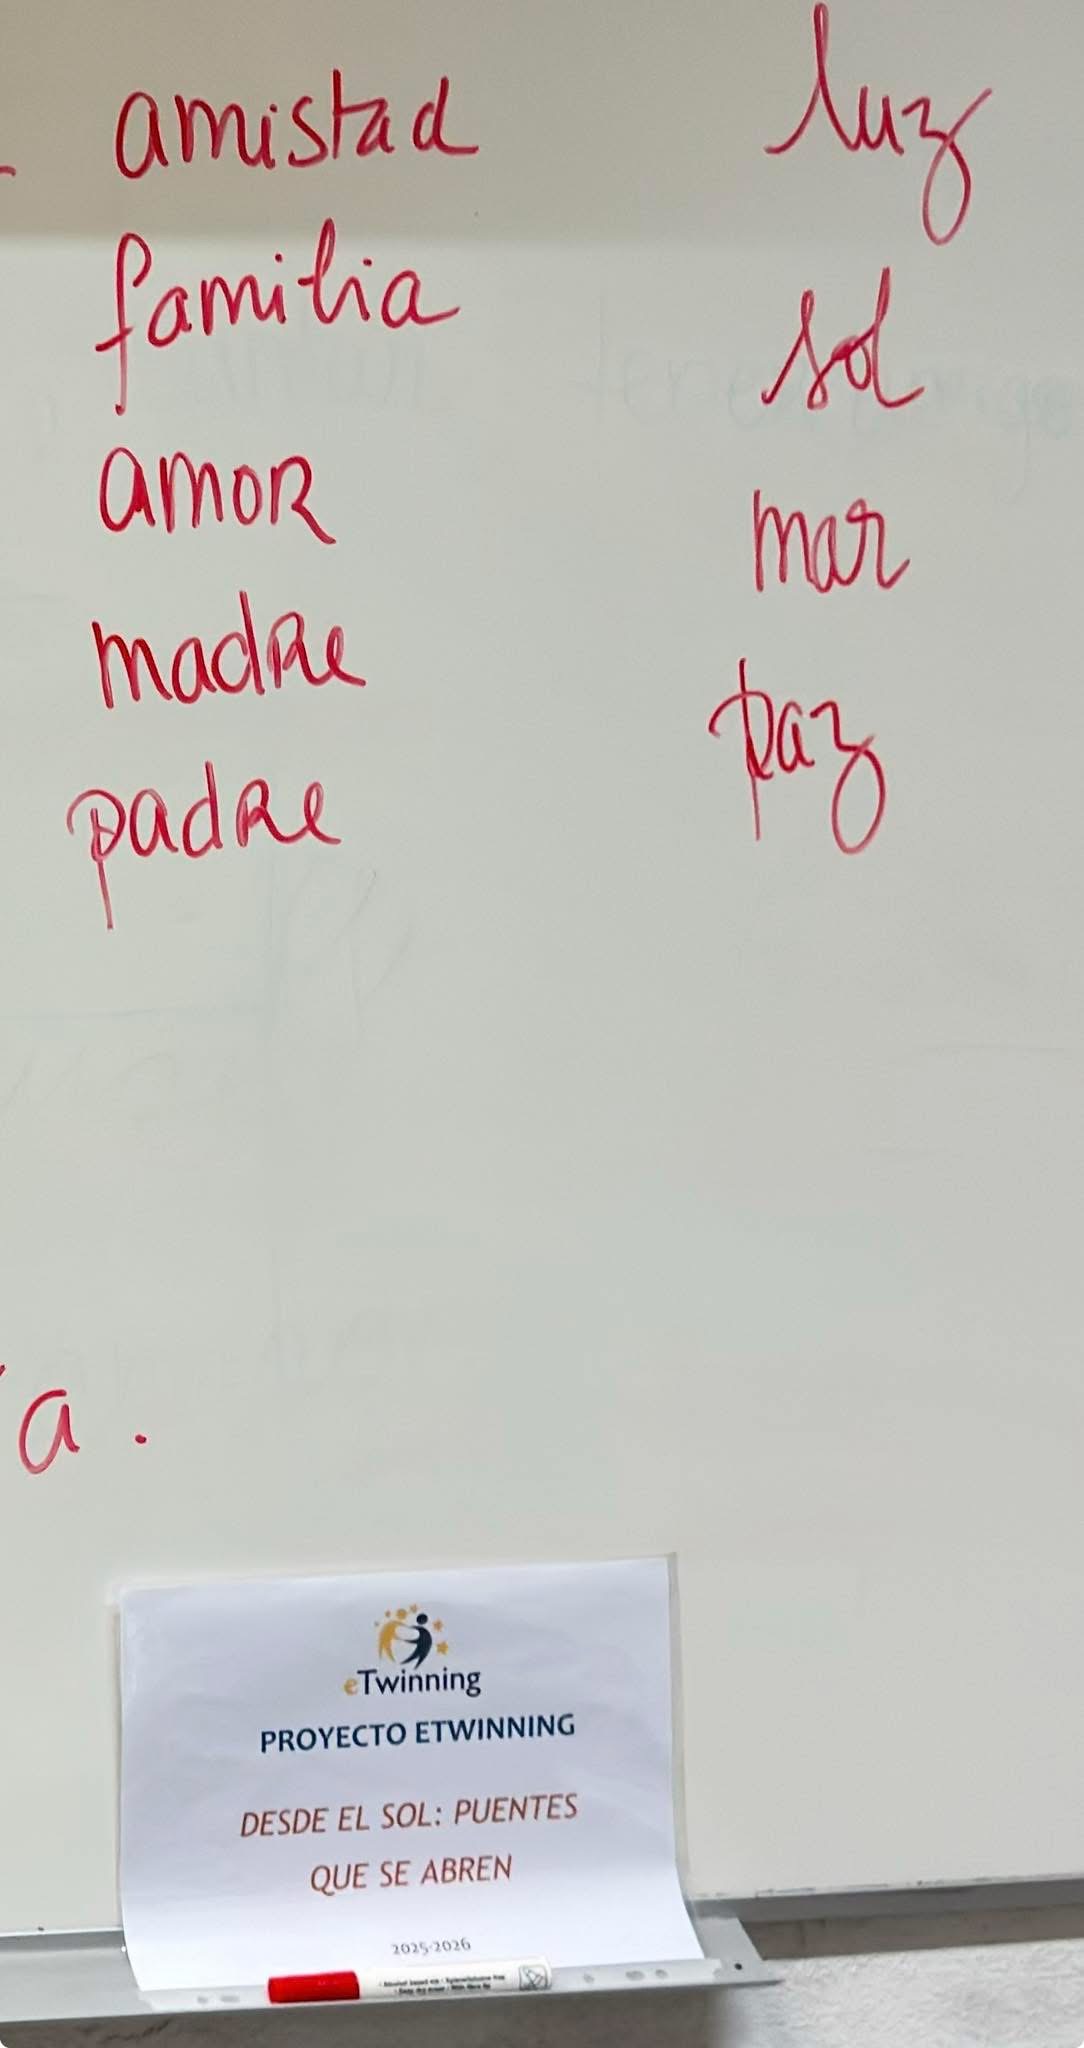 amistad
familia
amor
madre
padre
luz
sol
mar
paz
a.
eTwinning
PROYECTO ETWINNING
DESDE EL SOL: PUENTES
QUE SE ABREN
2025-2026